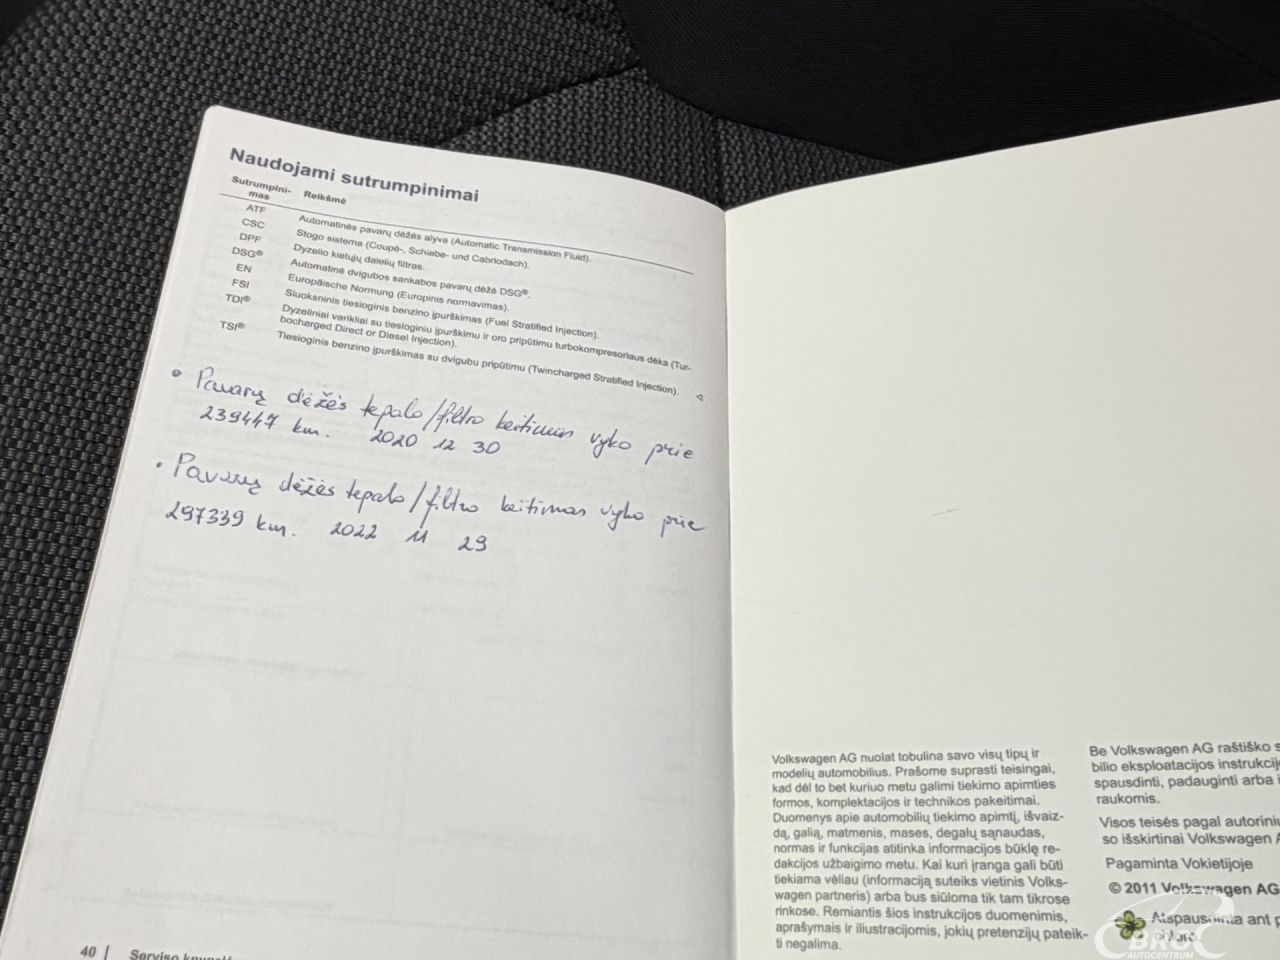 Naudojami sutrumpinimai
Sutrumpini-
mas
Reikšmė
ATF Automatinės pavarų dėžės alyva (Automatic Transmission Fluid).
CSC Stogo sistema (Coupé-, Schiebe- und Cabriodach).
DPF Dyzelio kietųjų dalelių filtras.
DSG® Automatinė dvigubos sankabos pavarų dėžė DSG®.
EN Europäische Normung (Europinis normavimas).
FSI Sluoksninis tiesioginis benzino įpurškimas (Fuel Stratified Injection).
TDI® Dyzeliniai varikliai su tiesioginiu įpurškimu ir oro pripūtimu turbokompresoriaus dėka (Tur-
bocharged Direct or Diesel Injection).
TSI® Tiesioginis benzino įpurškimas su dvigubu pripūtimu (Twincharged Stratified Injection).
• Pavarų dėžės tepalo/filtro keitimas vyko prie
239447 km. 2020 12 30
• Pavarų dėžės tepalo/filtro keitimas vyko prie
297339 km. 2022 11 29
40 | Serviso
Volkswagen AG nuolat tobulina savo visų tipų ir
modelių automobilius. Prašome suprasti teisingai,
kad dėl to bet kuriuo metu galimi tiekimo apimties
formos, komplektacijos ir technikos pakeitimai.
Duomenys apie automobilių tiekimo apimtį, išvaiz-
dą, galią, matmenis, mases, degalų sąnaudas,
normas ir funkcijas atitinka informacijos būklę re-
dakcijos užbaigimo metu. Kai kuri įranga gali būti
tiekiama vėliau (informaciją suteiks vietinis Volks-
wagen partneris) arba bus siūloma tik tam tikrose
rinkose. Remiantis šios instrukcijos duomenimis,
aprašymais ir iliustracijomis, jokių pretenzijų pateik-
ti negalima.
Be Volkswagen AG raštiško s
bilio eksploatacijos instrukcij
spausdinti, padauginti arba i
raukomis.
Visos teisės pagal autorini
so išskirtinai Volkswagen A
Pagaminta Vokietijoje
© 2011 Volkswagen AG
Atspausdinta ant p
chloro.
BRC
AUTOCENTRUM